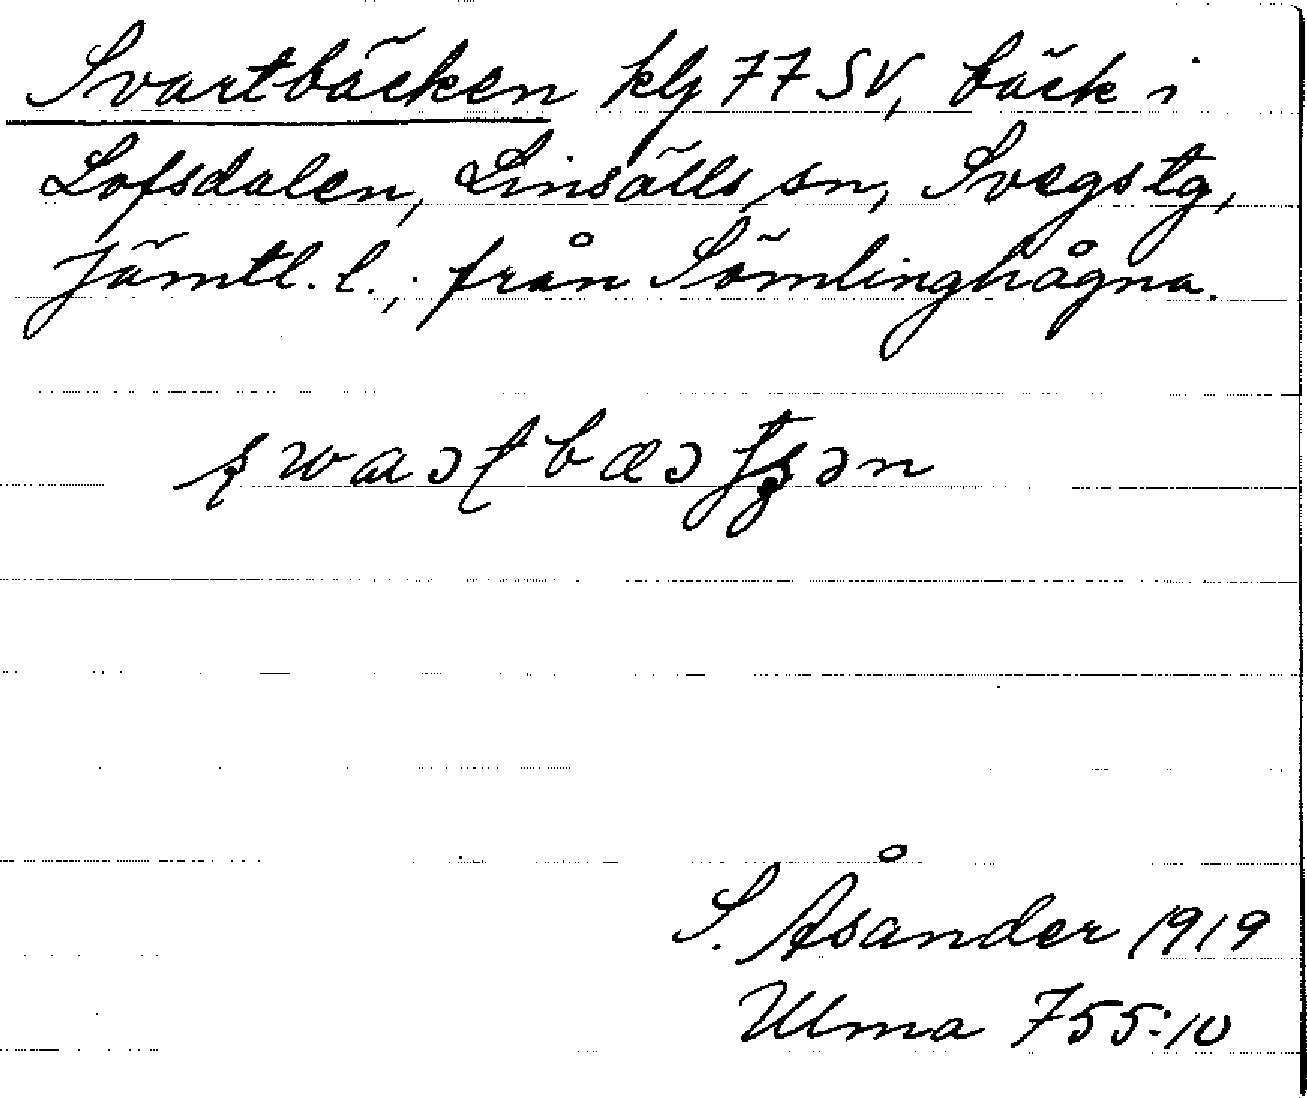 Svartbäcken klj 77 SV, bäck i
Lofsdalen, Linsälls sn, Svegs tg,
Jämtl. l., från Sömlinghågna.
S. Åsander 1919
Ulma 755:10